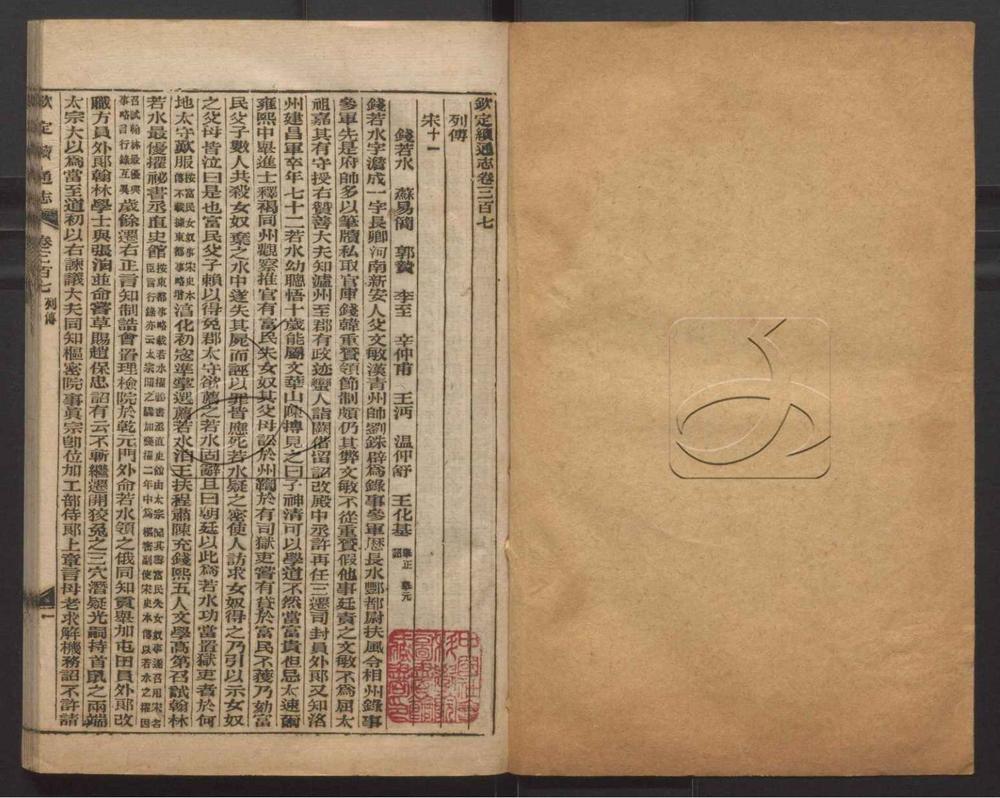 欽定續通志卷三百七
列傳
宋十一
錢若水 蘇易簡 郭贄 李至 辛仲甫 王沔 溫仲舒 王化基 舉正 舉元 詔
錢若水字澹成一字長卿河南新安人父文敏漢青州帥劉銖辟爲錄事參軍歷長水酆都尉扶風令相州錄事
參軍先是府帥多以筆牘私取官庫錢韓重贇領節制頗仍其弊文敏不從重贇假他事廷責之文敏不爲屈太
祖嘉其有守授右贊善大夫知瀘州至郡有政迹蠻人詣闕借留詔改殿中丞許再任三遷司封員外郎又知洛
州建昌軍卒年七十二若水幼聰悟十歲能屬文華山陳摶見之曰子神清可以學道不然當富貴但忌太速爾
雍熙中舉進士釋褐同州觀察推官有富民失女奴其父母訟於州鞫於有司獄吏嘗有貸於富民不獲乃劾富
民父子數人共殺女奴棄之水中遂失其屍而誣以罪皆應死若水疑之密使人訪求女奴得之乃引以示女奴
之父母皆泣曰是也富民父子賴以得免郡太守欲薦之若水固辭且曰朝廷以此爲若水功當置獄吏者於何
地太守歎服按富民女奴事宋史本傳不載據東都事略增淳化初寇準掌選薦若水洎王扶程肅陳充錢熙五人文學高第召試翰林
若水最優擢祕書丞直史館按東都事略載若水擢祕書丞直史館由太宗聞其辯富民失女奴事遂召用宋名臣言行錄亦云太宗聞之驟加奬擢二年中爲樞密副使宋史本傳以若水之擢因
召試翰林最優與事略言行錄互異歲餘遷右正言知制誥會置理檢院於乾元門外命若水領之俄同知貢舉加屯田員外郎改
職方員外郎翰林學士與張洎並命嘗草賜趙保忠詔有云不斬繼遷開狡兔之三穴潛疑光嗣持首鼠之兩端
太宗大以爲當至道初以右諫議大夫同知樞密院事眞宗卽位加工部侍郎上章言母老求解機務詔不許請
欽定續通志 卷三百七 列傳 一